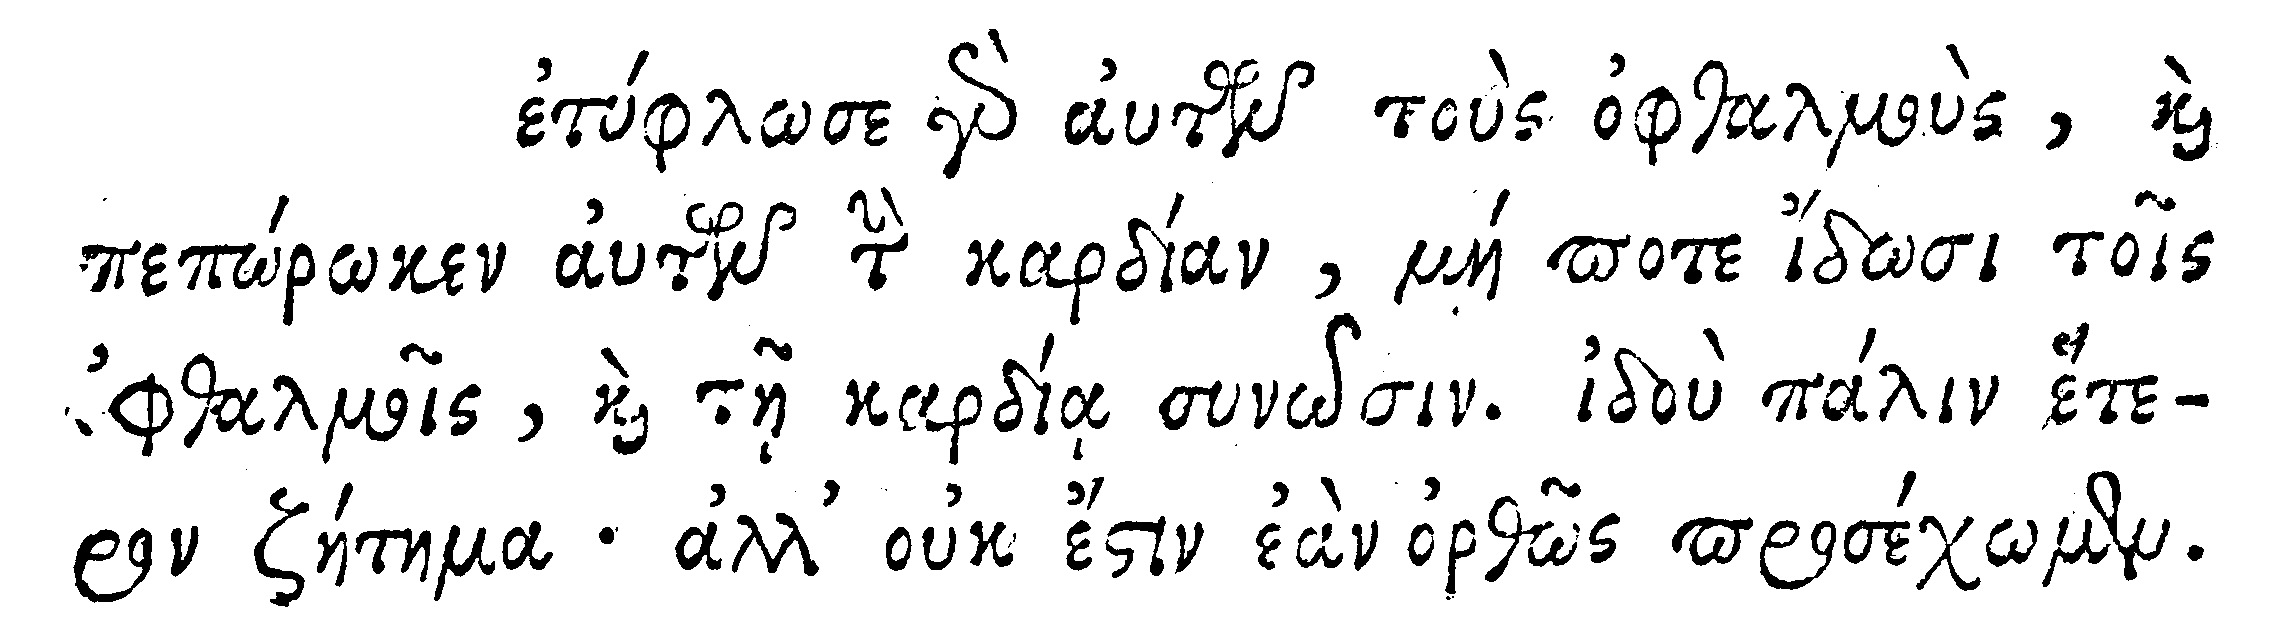 ἐτύφλωσε γὰρ ἀυτῶν τοὺς ὀφθαλμοὺς, καὶ
πεπώρωκεν ἀυτῶν τὴν καρδίαν, μή ποτε ἴδωσι τοῖς
ὀφθαλμοῖς, καὶ τῇ καρδίᾳ συνῶσιν. ἰδοὺ πάλιν ἕτε-
ρον ζήτημα · ἀλλ' οὐκ ἔστιν ἐὰν ὀρθῶς προσέχωμεν.